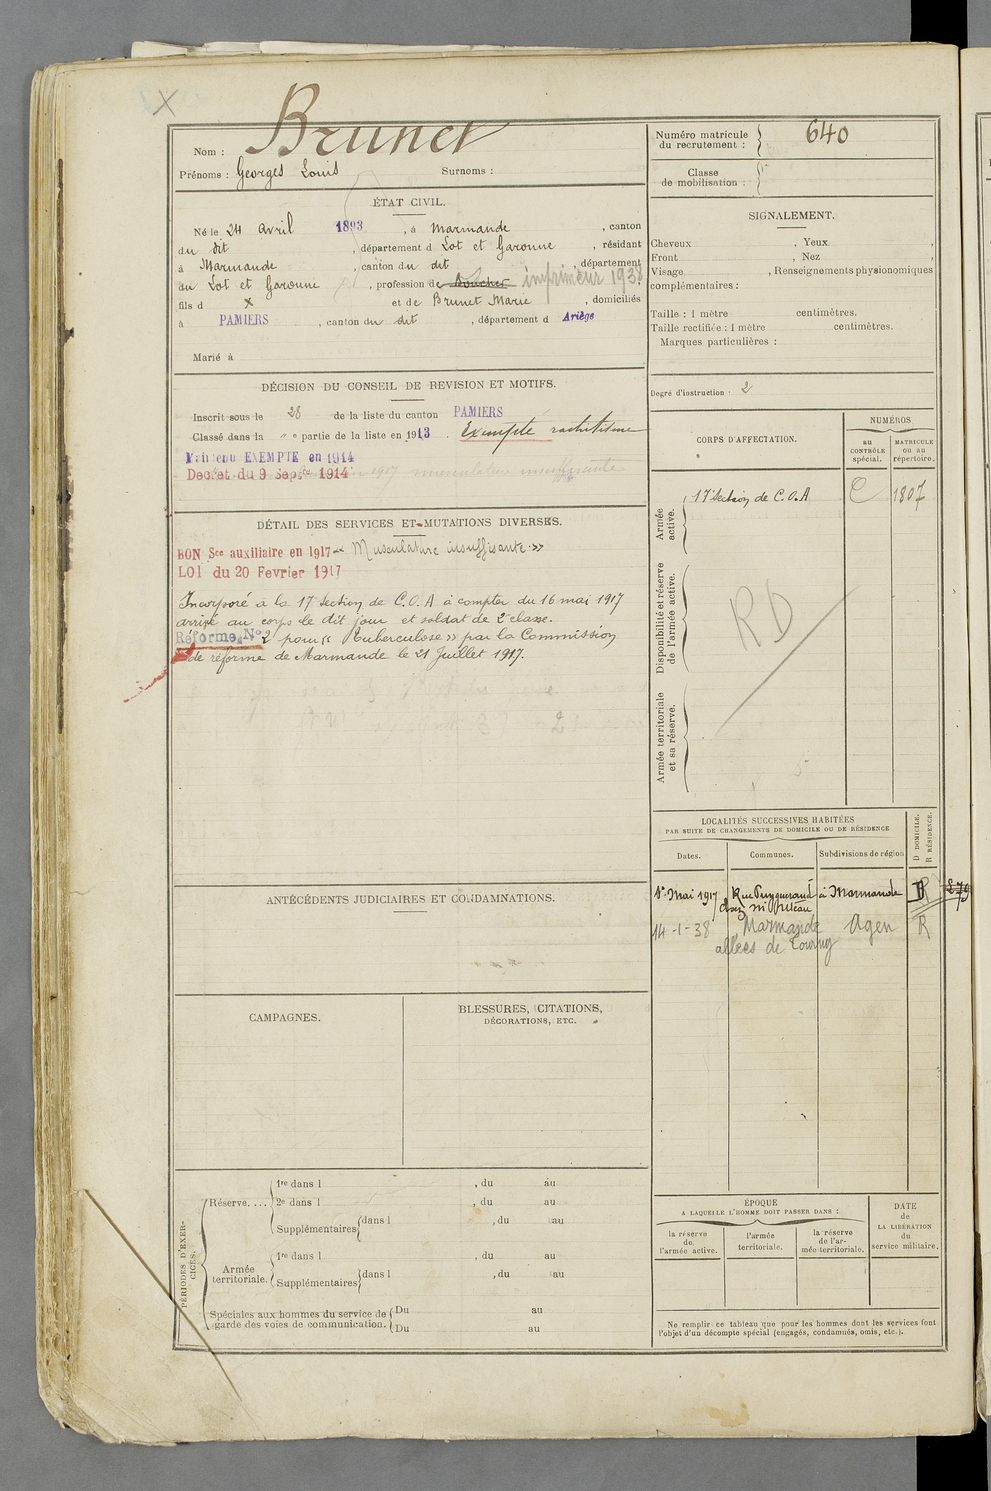 Nom : Brunet
Prénoms : Georges Louis Surnoms :
ÉTAT CIVIL.
Né le 24 avril 1893, à Marmande, canton
du dit, département d Lot et Garonne, résidant
à Marmande, canton du dit, département
du Lot et Garonne, profession de Boucher imprimeur 1938.
fils d x et de Brunet Marie, domiciliés
à PAMIERS, canton du dit, département d Ariège
Marié à
DÉCISION DU CONSEIL DE REVISION ET MOTIFS.
Inscrit sous le n° 28 de la liste du canton PAMIERS
Classé dans la " e partie de la liste en 1913. Exempté rachitisme
Maintenu EXEMPTE en 1914
Decret du 9 Sept 1914 1917 musculature insuffisante
DÉTAIL DES SERVICES ET MUTATIONS DIVERSES.
BON Sce auxiliaire en 1917 « Musculature insuffisante »
LOI du 20 Fevrier 1917
Incorporé a la 17e Section de C.O.A à compter du 16 mai 1917
arrivé au corps le dit jour et soldat de 2e classe.
Réformé N°2 pour « Tuberculose » par la Commission
de réforme de Marmande le 21 Juillet 1917.
ANTÉCÉDENTS JUDICIAIRES ET CONDAMNATIONS.
CAMPAGNES.
BLESSURES, CITATIONS,
DÉCORATIONS, ETC.
PÉRIODES D'EXERCICES.
Réserve....
1re dans l , du au
2e dans l , du au
Supplémentaires dans l , du au
Armée territoriale.
1re dans l , du au
Supplémentaires dans l , du au
Spéciales aux hommes du service de
garde des voies de communication.
Du au
Du au
Numéro matricule
du recrutement : 640
Classe
de mobilisation :
SIGNALEMENT.
Cheveux , Yeux ,
Front , Nez ,
Visage , Renseignements physionomiques
complémentaires :
Taille : 1 mètre centimètres.
Taille rectifiée : 1 mètre centimètres.
Marques particulières :
Degré d'instruction : 2
CORPS D'AFFECTATION.
NUMÉROS
au
CONTRÔLE
spécial.
MATRICULE
OU au
répertoire.
Armée
active.
17e Section de C.O.A C 1807
Disponibilité et réserve
de l'armée active.
RD
Armée territoriale
et sa réserve.
LOCALITÉS SUCCESSIVES HABITÉES
PAR SUITE DE CHANGEMENTS DE DOMICILE OU DE RÉSIDENCE
Dates.
Communes.
Subdivisions de région
D DOMICILE.
R RÉSIDENCE.
1er Mai 1917 Rue Puygueraud à Marmande R
chez
14-1-38 Marmande Agen R
allées de Tourny
ÉPOQUE
A LAQUELLE L'HOMME DOIT PASSER DANS :
la réserve
de
l'armée active.
l'armée
territoriale.
la réserve
de l'ar-
mée territoriale.
DATE
de
LA LIBÉRATION
du
service militaire.
Ne remplir ce tableau que pour les hommes dont les services font
l'objet d'un décompte spécial (engagés, condamnés, omis, etc.).